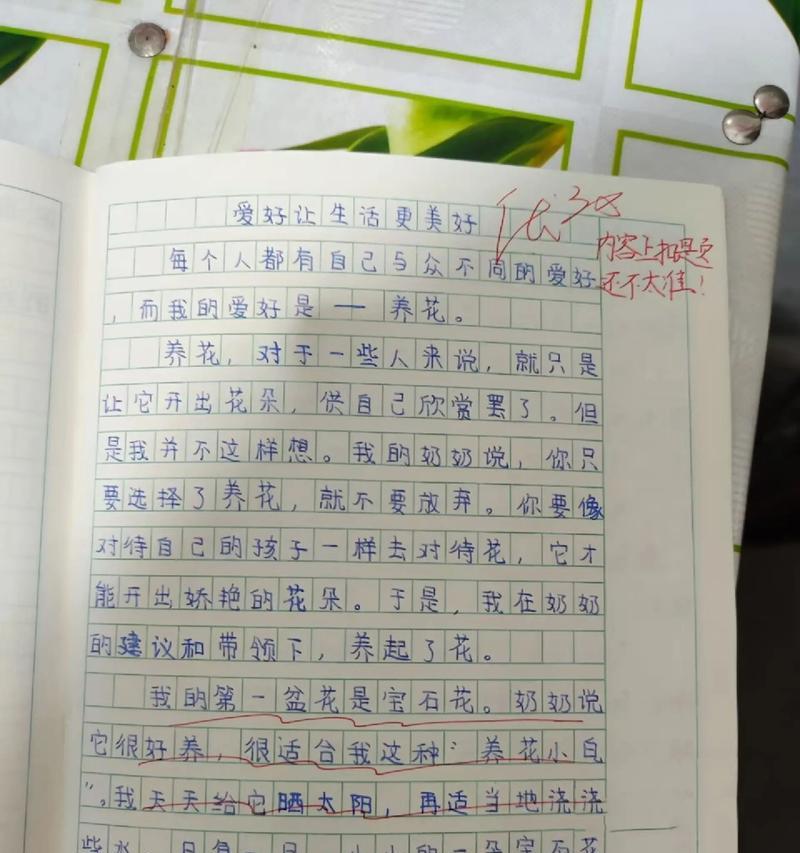 爱好让生活更美好
优 38
内容上扣题还
还不太准！
每个人都有自己与众不同的爱好
，而我的爱好是——养花。
养花，对于一些人来说，就只是
让它开出花朵，供自己欣赏罢了。但
是我并不这样想。我的奶奶说，你只
要选择了养花，就不要放弃。你要像
对待自己的孩子一样去对待花，它才
能开出娇艳的花朵。于是，我在奶奶
的建议和带领下，养起了花。
我的第一盆花是宝石花。奶奶说
它很好养，很适合我这种“养花小白
”。我天天给它晒太阳，再适当地浇浇
些水，日复一日，小小的一朵宝石花